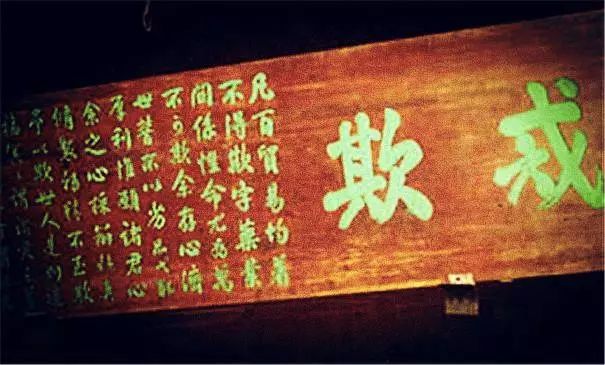 戒欺
凡百貿易均着
不得欺字藥業
關係性命尤為萬
不可欺余存心濟
世誓不以劣品弋取
厚利惟願諸君心
余之心採辦務真
修製務精不至欺
予以欺世人是則造
福